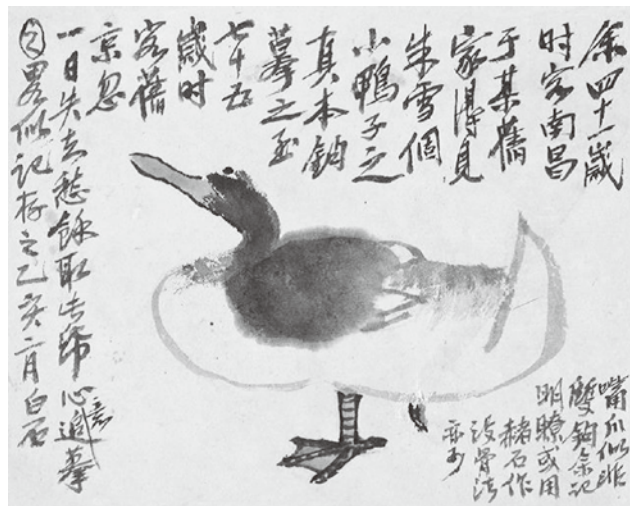 余四十一歲
时客南昌
于某舊
家得見
朱雪個
小鴨子之
真本鉤
摹之至
七十五
歲时
客舊
京忽
一日失去愁餘取此紙心意追摹
之畧似記存之乙亥二月白石
嘴爪似非
雙鉤余記
明瞭或用
赭石作
沒骨法
亦可